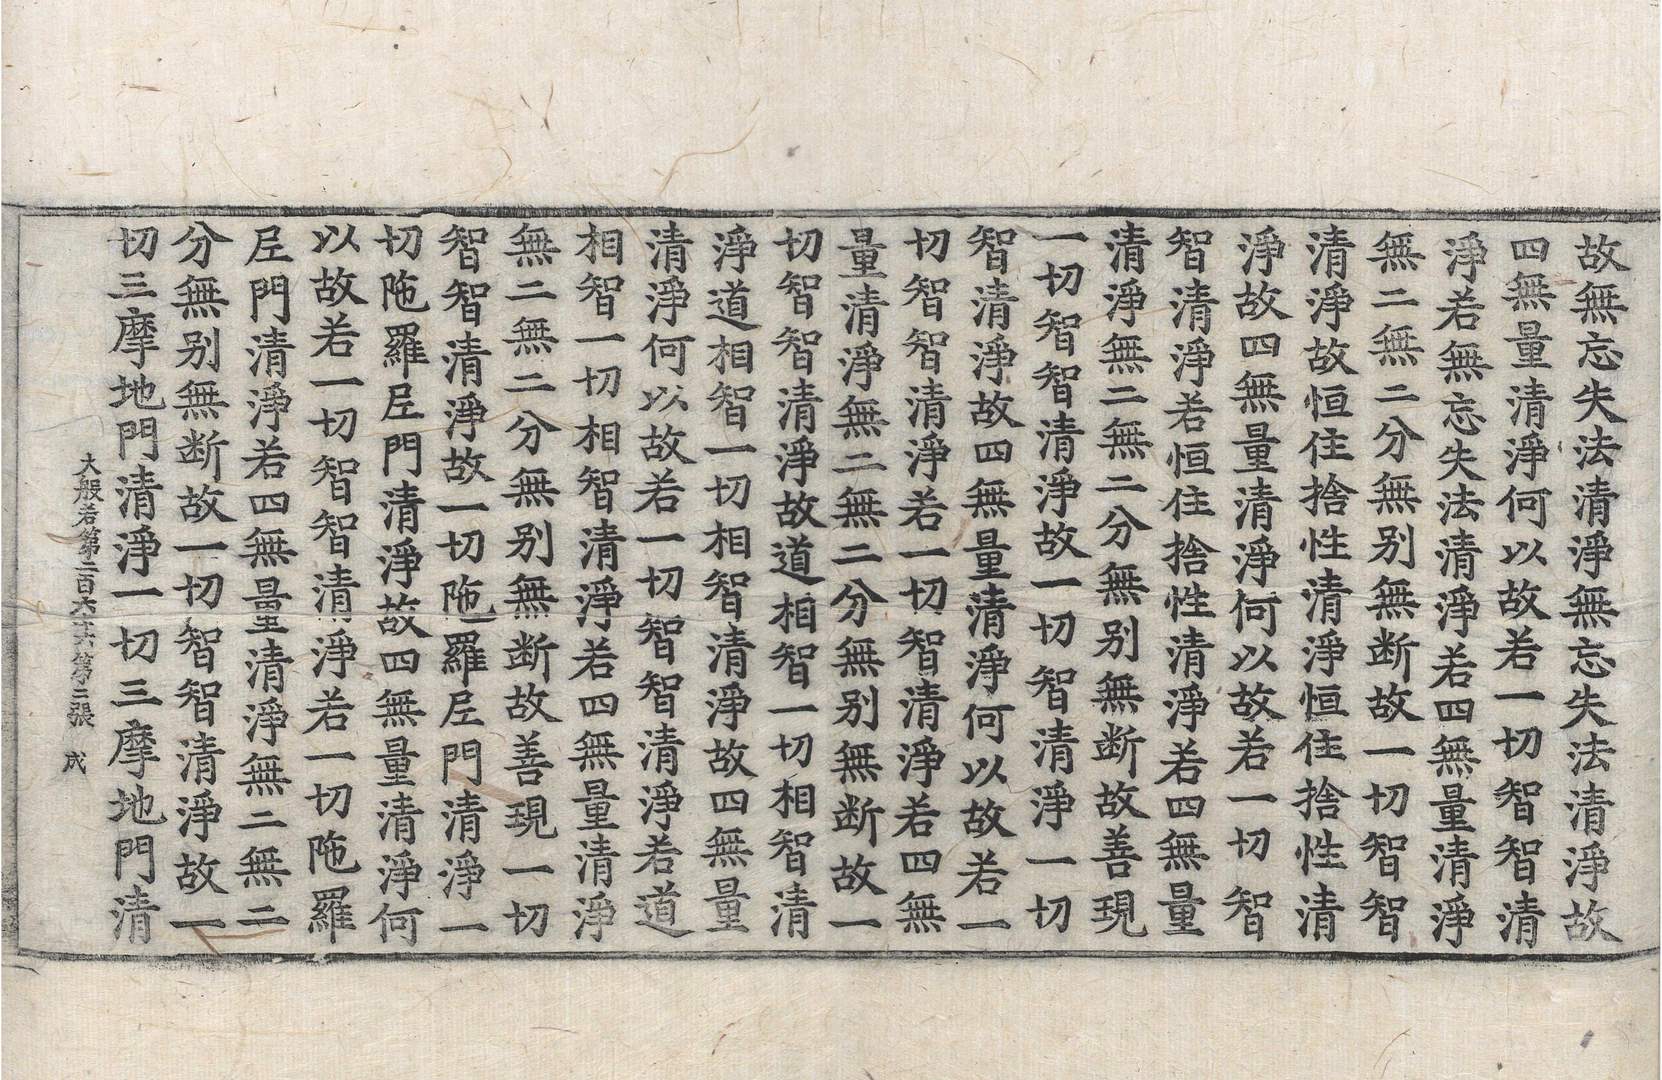 故無忘失法清淨無忘失法清淨故
四無量清淨何以故若一切智智清
淨若無忘失法清淨若四無量清淨
無二無二分無別無斷故一切智智
清淨故恒住捨性清淨恒住捨性清
淨故四無量清淨何以故若一切智
智清淨若恒住捨性清淨若四無量
清淨無二無二分無別無断故善現
一切智智清淨故一切智清淨一切
智清淨故四無量清淨何以故若一
切智智清淨若一切智清淨若四無
量清淨無二無二分無別無断故一
切智智清淨故道相智一切相智清
淨道相智一切相智清淨故四無量
清淨何以故若一切智智清淨若道
相智一切相智清淨若四無量清淨
無二無二分無別無断故善現一切
智智清淨故一切陁羅尼門清淨一
切陁羅尼門清淨故四無量清淨何
以故若一切智智清淨若一切陁羅
尼門清淨若四無量清淨無二無二
分無別無断故一切智智清淨故一
切三摩地門清淨一切三摩地門清
大般若第二百六十六 第二張 成